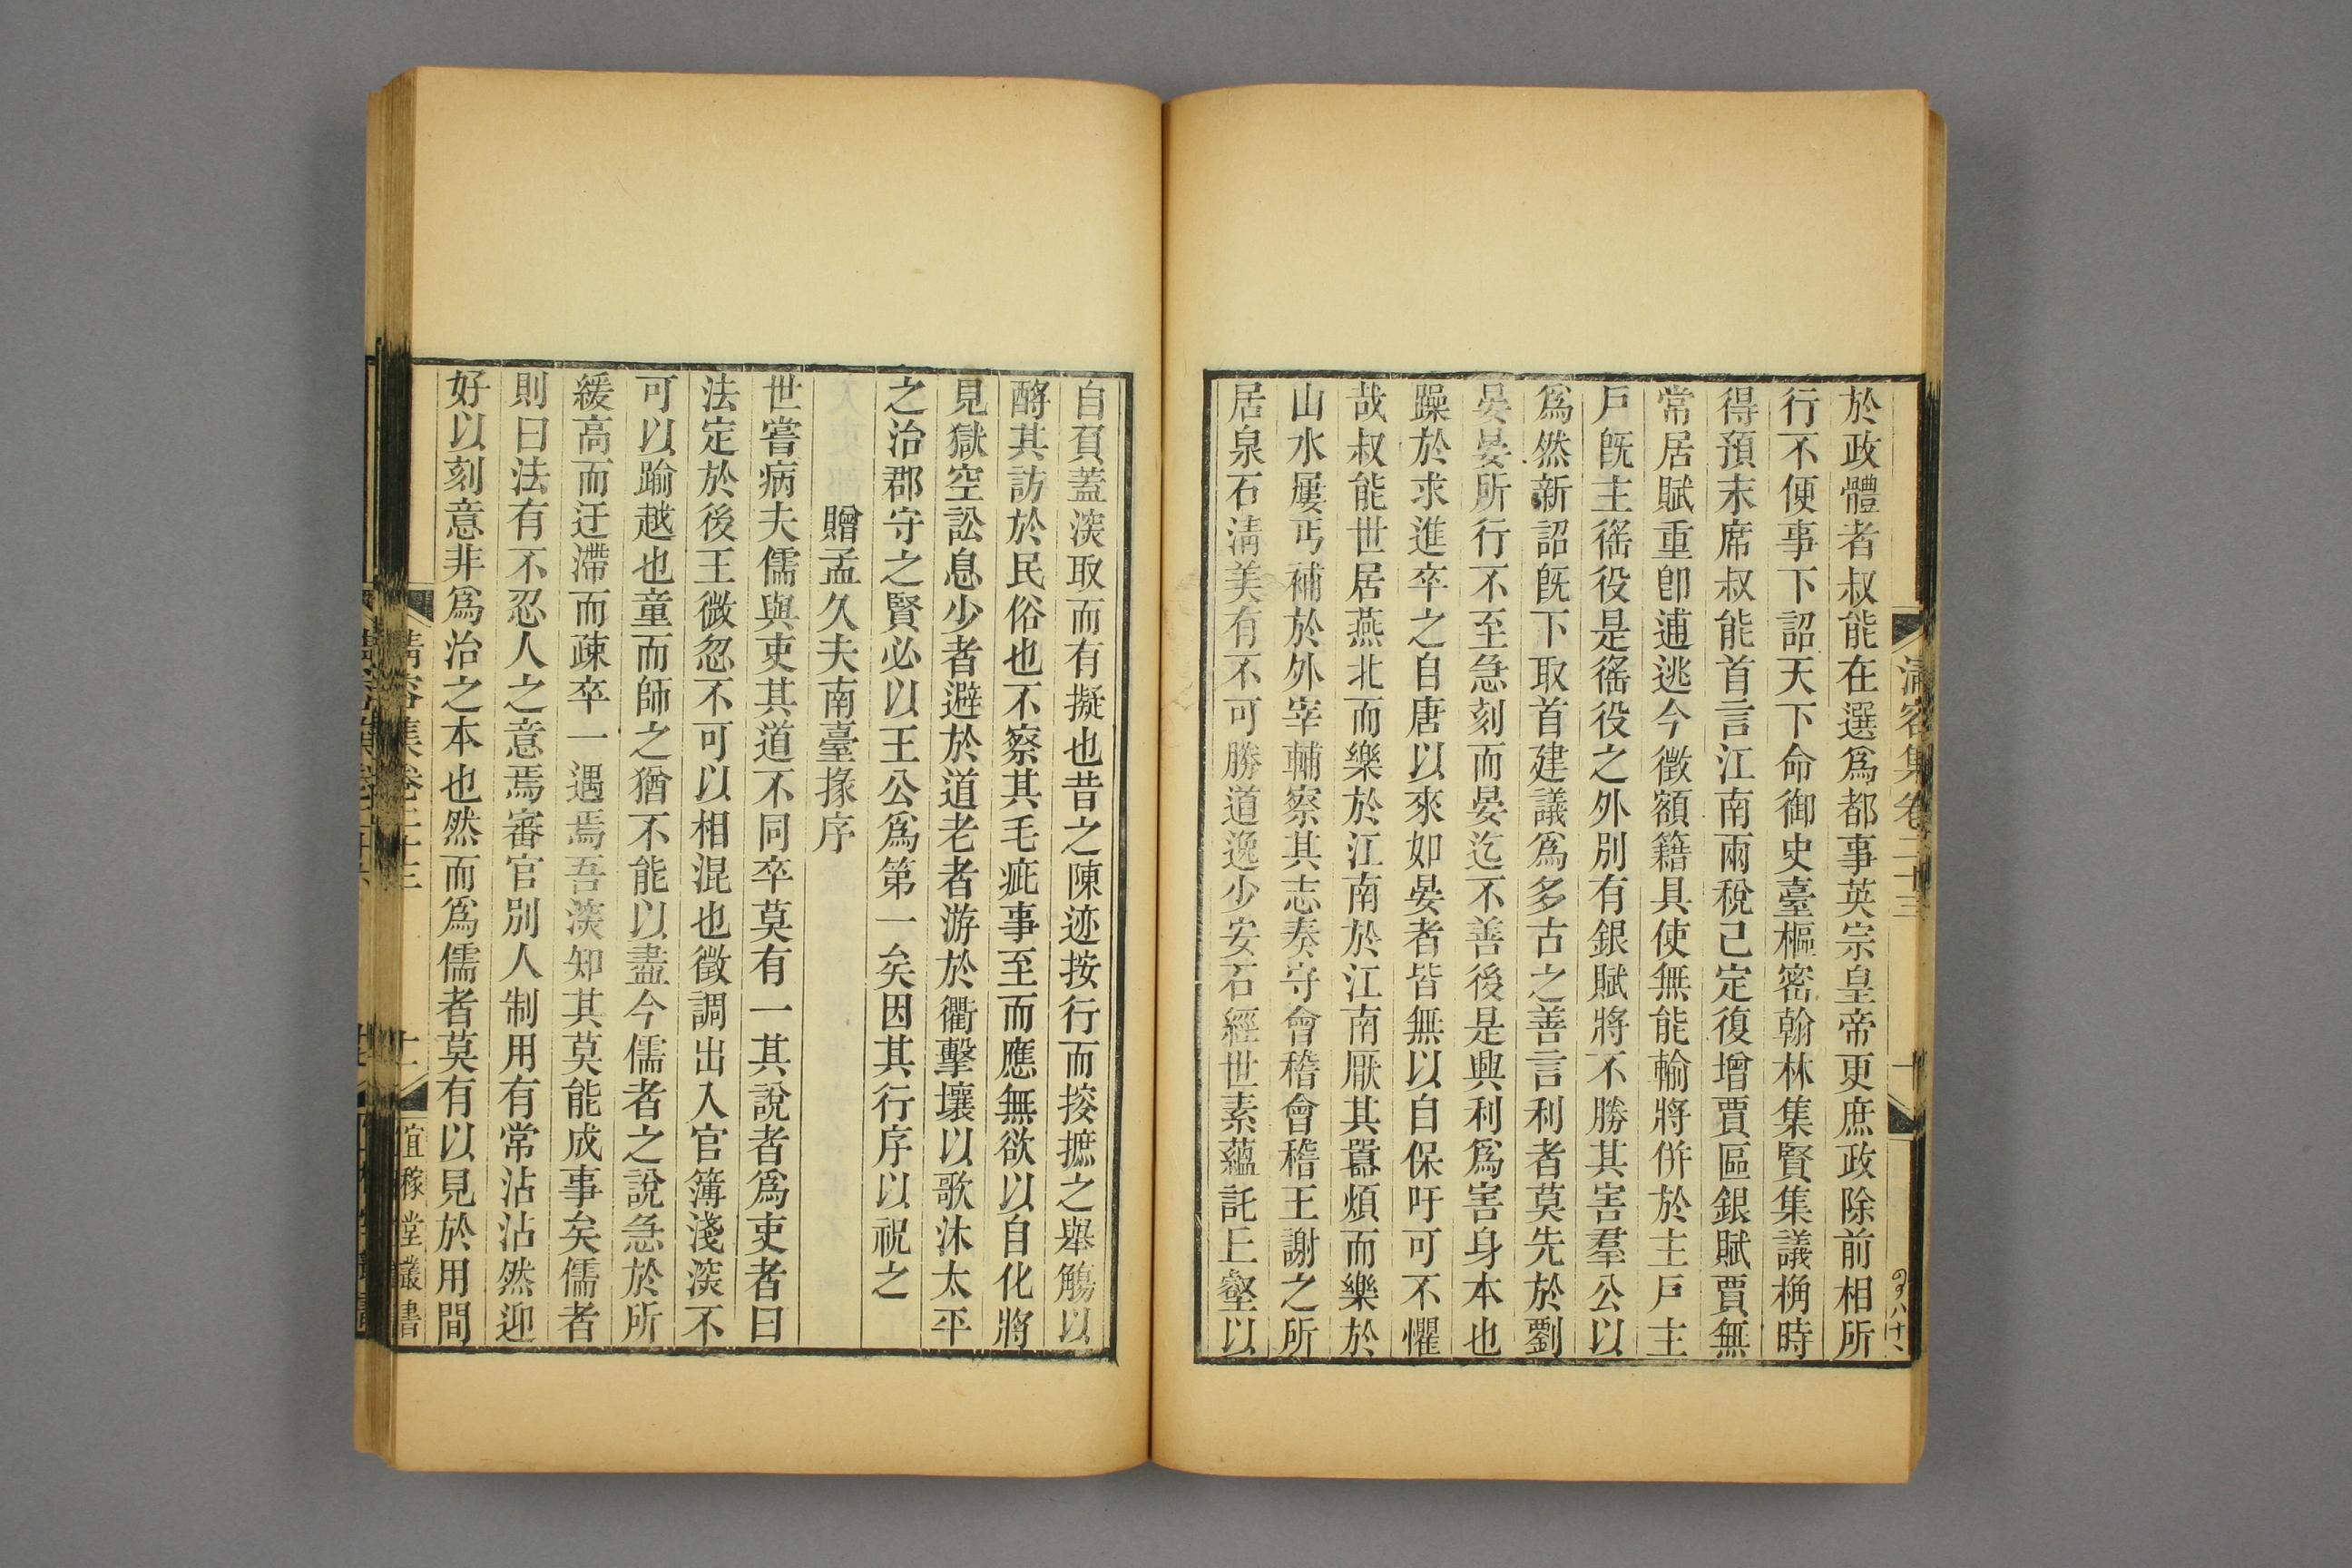 清容集卷二十三
於政體者叔能在選爲都事英宗皇帝更庶政除前相所
行不便事下詔天下命御史臺樞密翰林集賢集議桷時
得預末席叔能首言江南兩稅已定復增賈區銀賦賈無
常居賦重卽逋逃今徵額籍具使無能輸將併於主戸主
戸旣主徭役是徭役之外別有銀賦將不勝其害羣公以
爲然新詔旣下取首建議爲多古之善言利者莫先於劉
晏晏所行不至急刻而晏迄不善後是興利爲害身本也
躁於求進卒之自唐以來如晏者皆無以自保吁可不懼
哉叔能世居燕北而樂於江南於江南厭其囂煩而樂於
山水屢丐補於外宰輔察其志奏守會稽會稽王謝之所
居泉石淸美有不可勝道逸少安石經世素蘊託丘壑以
自負蓋深取而有擬也昔之陳迹按行而捘摭之舉觴以
酹其訪於民俗也不察其毛疵事至而應無欲以自化將
見獄空訟息少者避於道老者游於衢擊壤以歌沐太平
之治郡守之賢必以王公爲第一矣因其行序以祝之
贈孟久夫南臺掾序
世嘗病夫儒與吏其道不同卒莫有一其說者爲吏者曰
法定於後王微忽不可以相混也徵調出入官簿淺深不
可以踰越也童而師之猶不能以盡今儒者之說急於所
緩高而迂滯而疎卒一遇焉吾深知其莫能成事矣儒者
則曰法有不忍人之意焉審官別人制用有常沾沾然迎
好以刻意非爲治之本也然而爲儒者莫有以見於用間
清容集卷二十三
十一
宜稼堂叢書